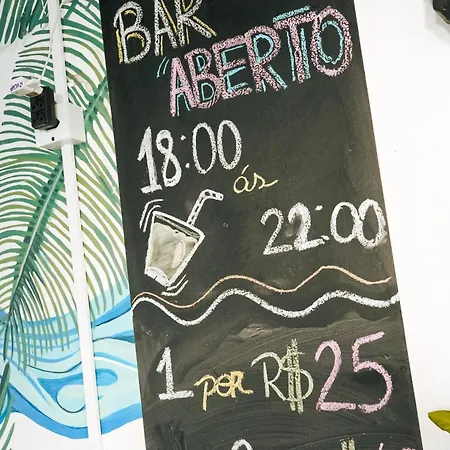 BAR
ABERTO
18:00
ás
22:00
1 por R$25